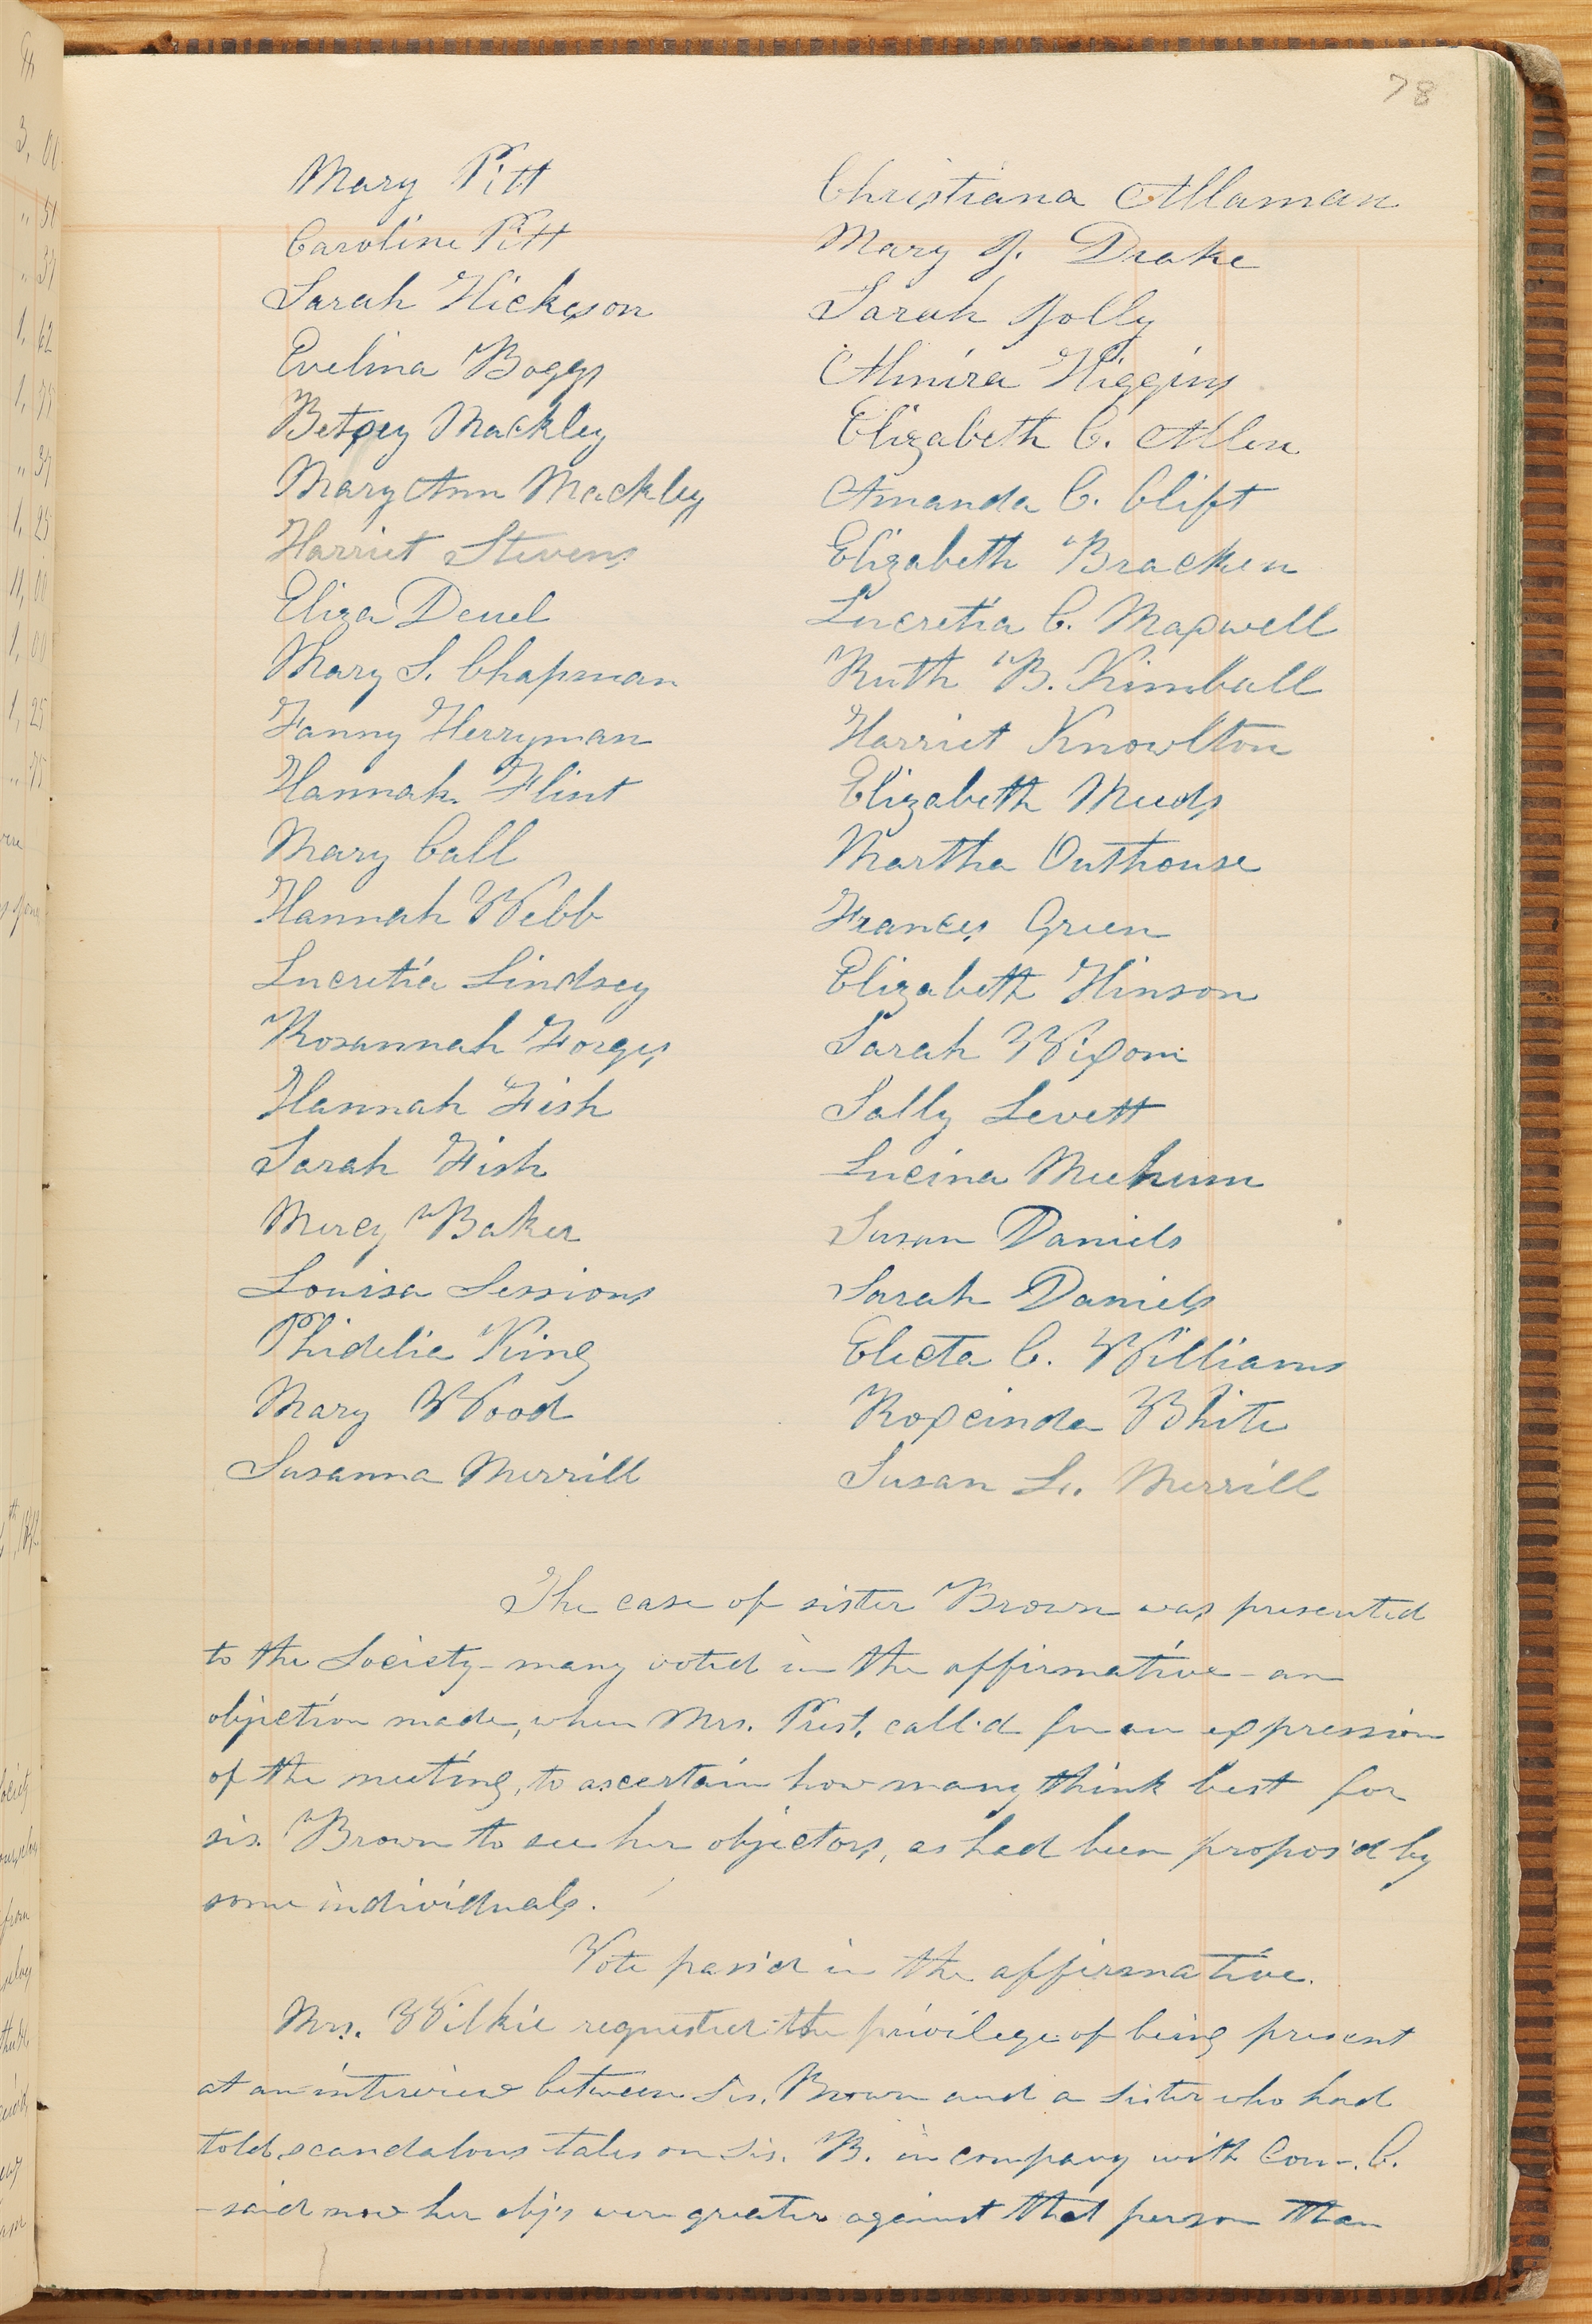 78
Mary Pitt
Caroline Pitt
Sarah Hickson
Evelina Boggs
Betsey Mackley
Mary Ann Mackley
Harriet Stevens
Eliza Deuel
Mary S. Chapman
Fanny Herryman
Hannah Flint
Mary Call
Hannah Webb
Lucretia Lindsey
Rosannah Forges
Hannah Fish
Sarah Fish
Mercy Baker
Louisa Sessions
Phidelia King
Mary Wood
Susanna Merrill
Christiana Allaman
Mary J. Drake
Sarah Jolly
Almira Higgins
Elizabeth C. Allen
Amanda C. Clift
Elizabeth Bracken
Lucretia C. Maxwell
Ruth B. Kimball
Harriet Knowlton
Elizabeth Meeds
Martha Outhouse
Frances Green
Elizabeth Hinson
Sarah Wixom
Sally Levett
Lucina Mechum
Susan Daniels
Sarah Daniels
Electa C. Williams
Roxcinda White
Susan L. Merrill
The case of sister Brown was presented
to the Society - many voted in the affirmative - an
objection made, when Mrs. Prest. call'd for an expression
of the meeting, to ascertain how many think best for
sis. Brown to see her objectors, as had been propos'd by
some individuals.
Vote pass'd in the affirmative.
Mrs. Wilkie requested the privilege of being present
at an interview between Sis. Brown and a Sister who had
told scandalous tales on Sis. B. in company with Coun. C.
- said now her obj's were greater against that person than